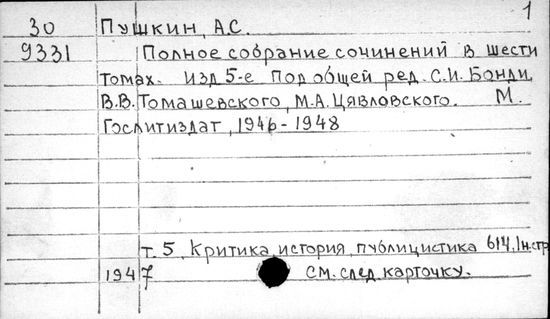 1
30 Пушкин, А.С.
9331 Полное собрание сочинений в шести
томах. Изд 5-е Под общей ред. С.И. Бонди,
В.В. Томашевского, М.А. Цявловского. М.
Гослитиздат, 1946-1948
т. 5. Критика история, публицистика 614, 1н.стр
1947 см. след. карточку.